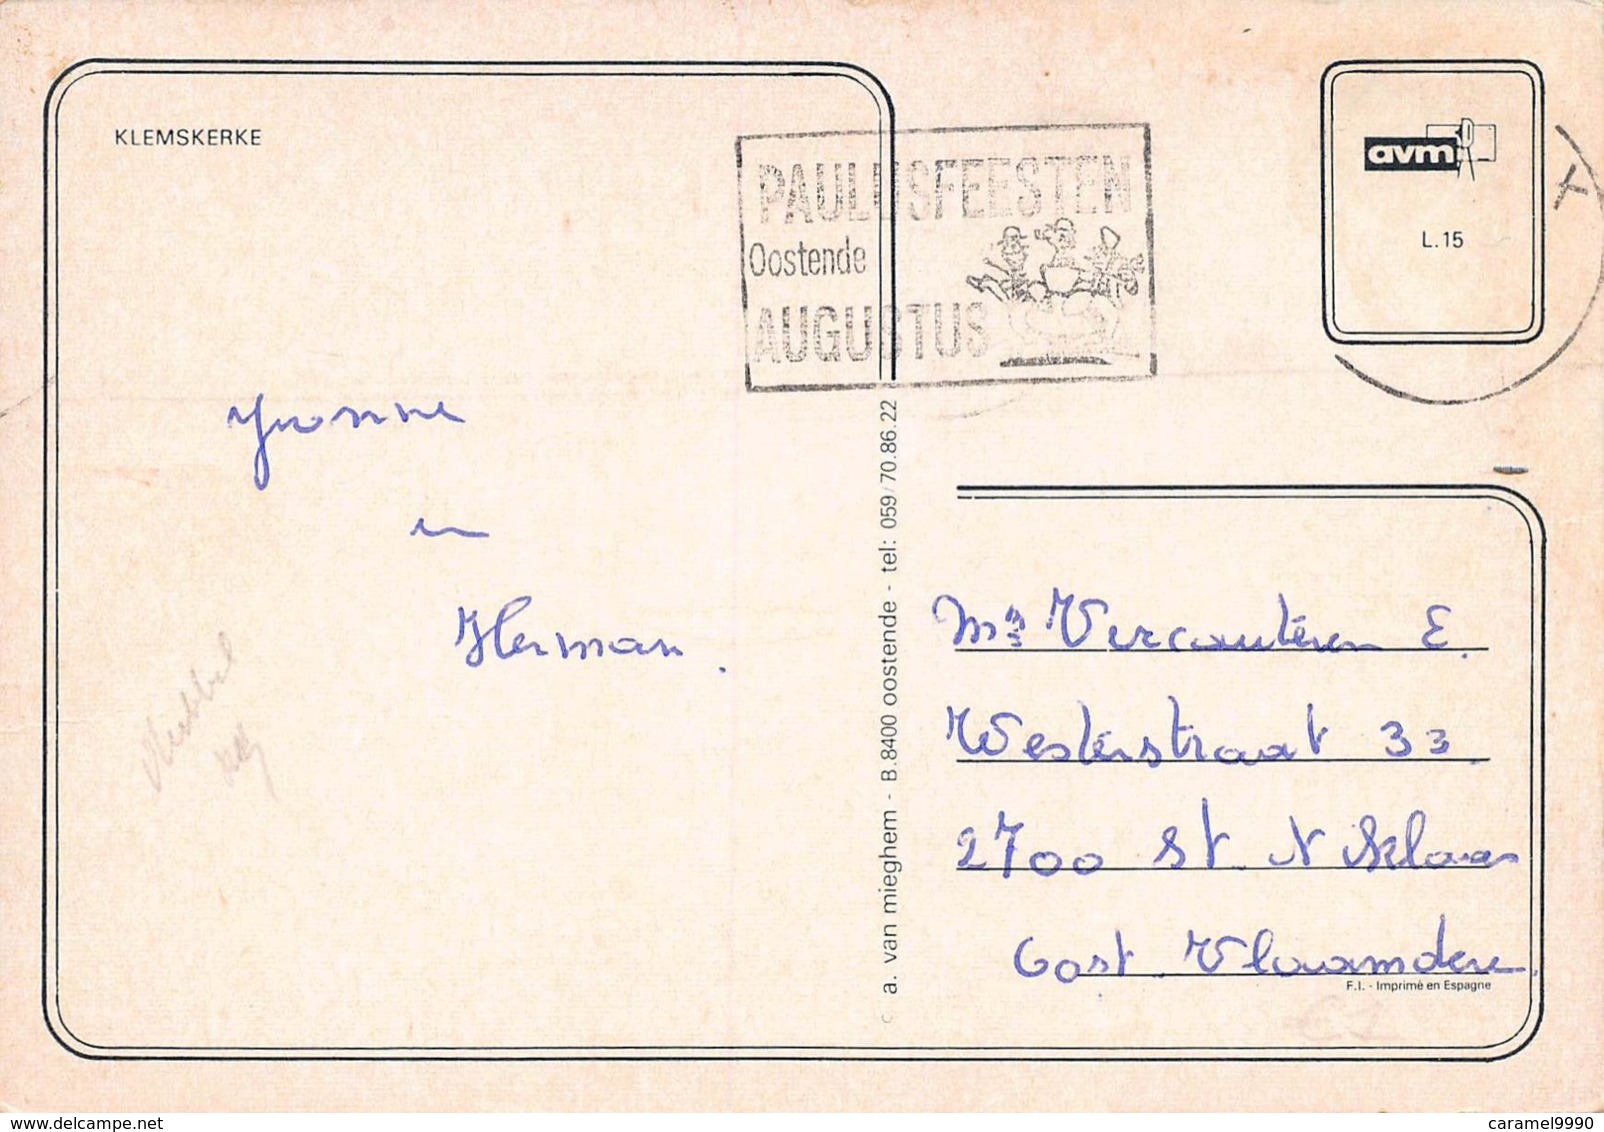 KLEMSKERKE
PAULUSFEESTEN
Oostende
AUGUSTUS
avm
L.15
X
Yvonne
en
Herman.
a. van mieghem - B.8400 oostende - tel: 059/70.86.22
Vercauteren E.
Westerstraat 33
2700 St. Niklaas
Oost Vlaanderen
F.I. - Imprimé en Espagne
www.delcampe.net
caramel9990